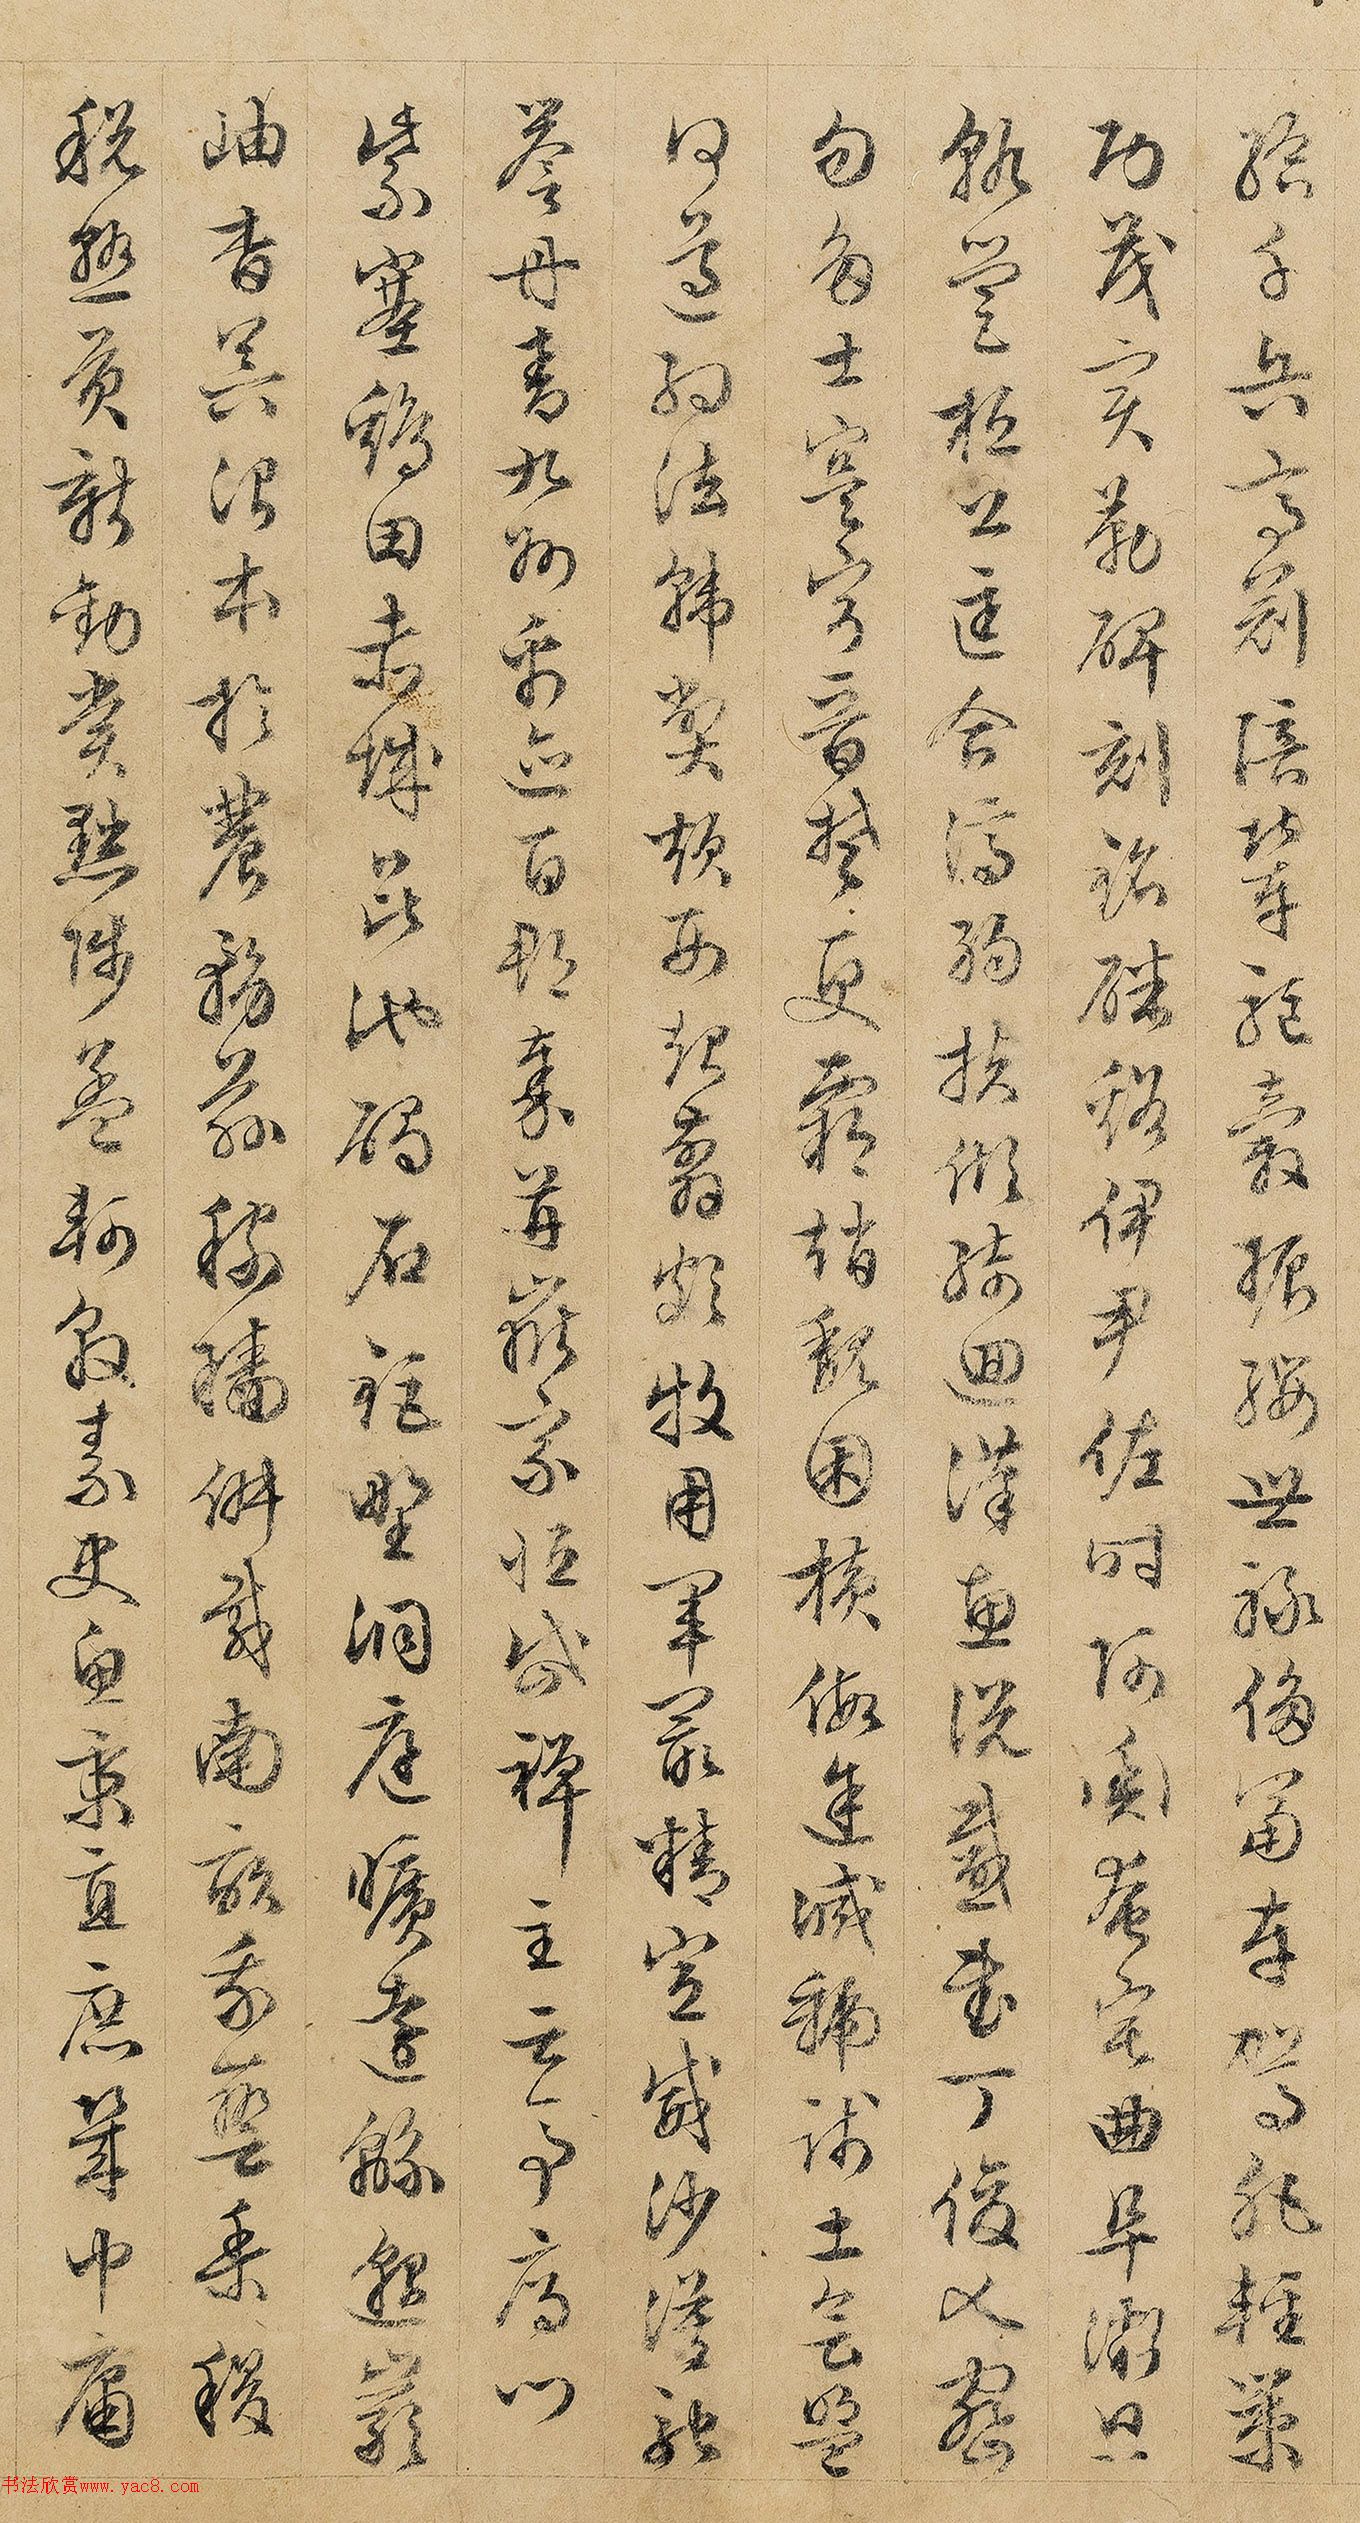 給千兵高冠陪輦驅轂振纓世祿侈富車駕肥輕策
功茂實勒碑刻銘磻谿伊尹佐時阿衡奄宅曲阜微旦
孰營桓公匡合濟弱扶傾綺迴漢惠說感武丁俊乂密
勿多士寔寧晉楚更霸趙魏困橫假途滅虢踐土會盟
何遵約法韓弊煩刑起翦頗牧用軍最精宣威沙漠馳
譽丹青九州禹迹百郡秦并嶽宗恒岱禪主云亭雁門
紫塞雞田赤城昆池碣石鉅野洞庭曠遠綿邈巖
岫杳冥治本於農務茲稼穡俶載南畝我藝黍稷
稅熟貢新勸賞黜陟孟軻敦素史魚秉直庶幾中庸
书法欣赏www.yac8.com